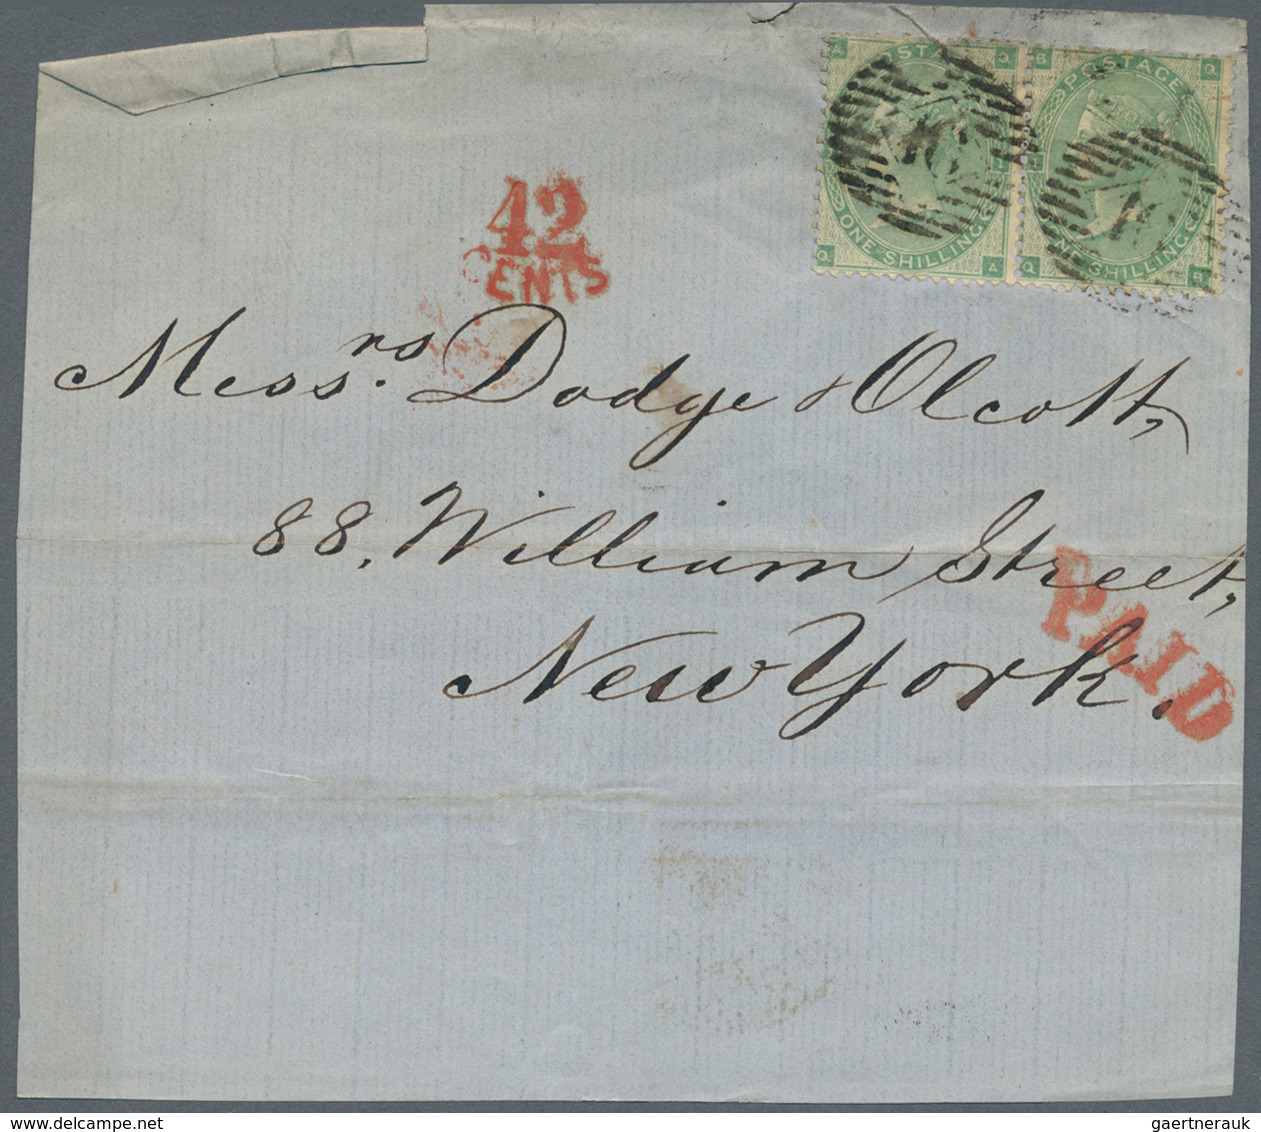 A POSTAGE Q B POSTAGE Q
ONE SHILLING ONE SHILLING
Q A Q B
42
CENTS
Messrs. Dodge & Olcott,
88. William Street,
New York.
PAID
gaertnerauk